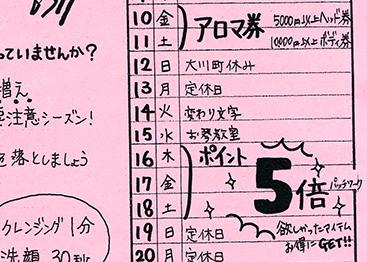 っていませんか?
増え
注意シーズン!
を落としましょう
クレンジング1分
洗顔 30秒
10 金 アロマ券 5000円以上ヘッド券
11 土 10000円以上ボディ券
12 日 大川町休み
13 月 定休日
14 火 変わり文字
15 水 お琴教室
16 木 ポイント
17 金 5倍 パッチワーク
18 土
19 日 定休日 欲しかったアイテム
お得にGET!!
20 月 定休日